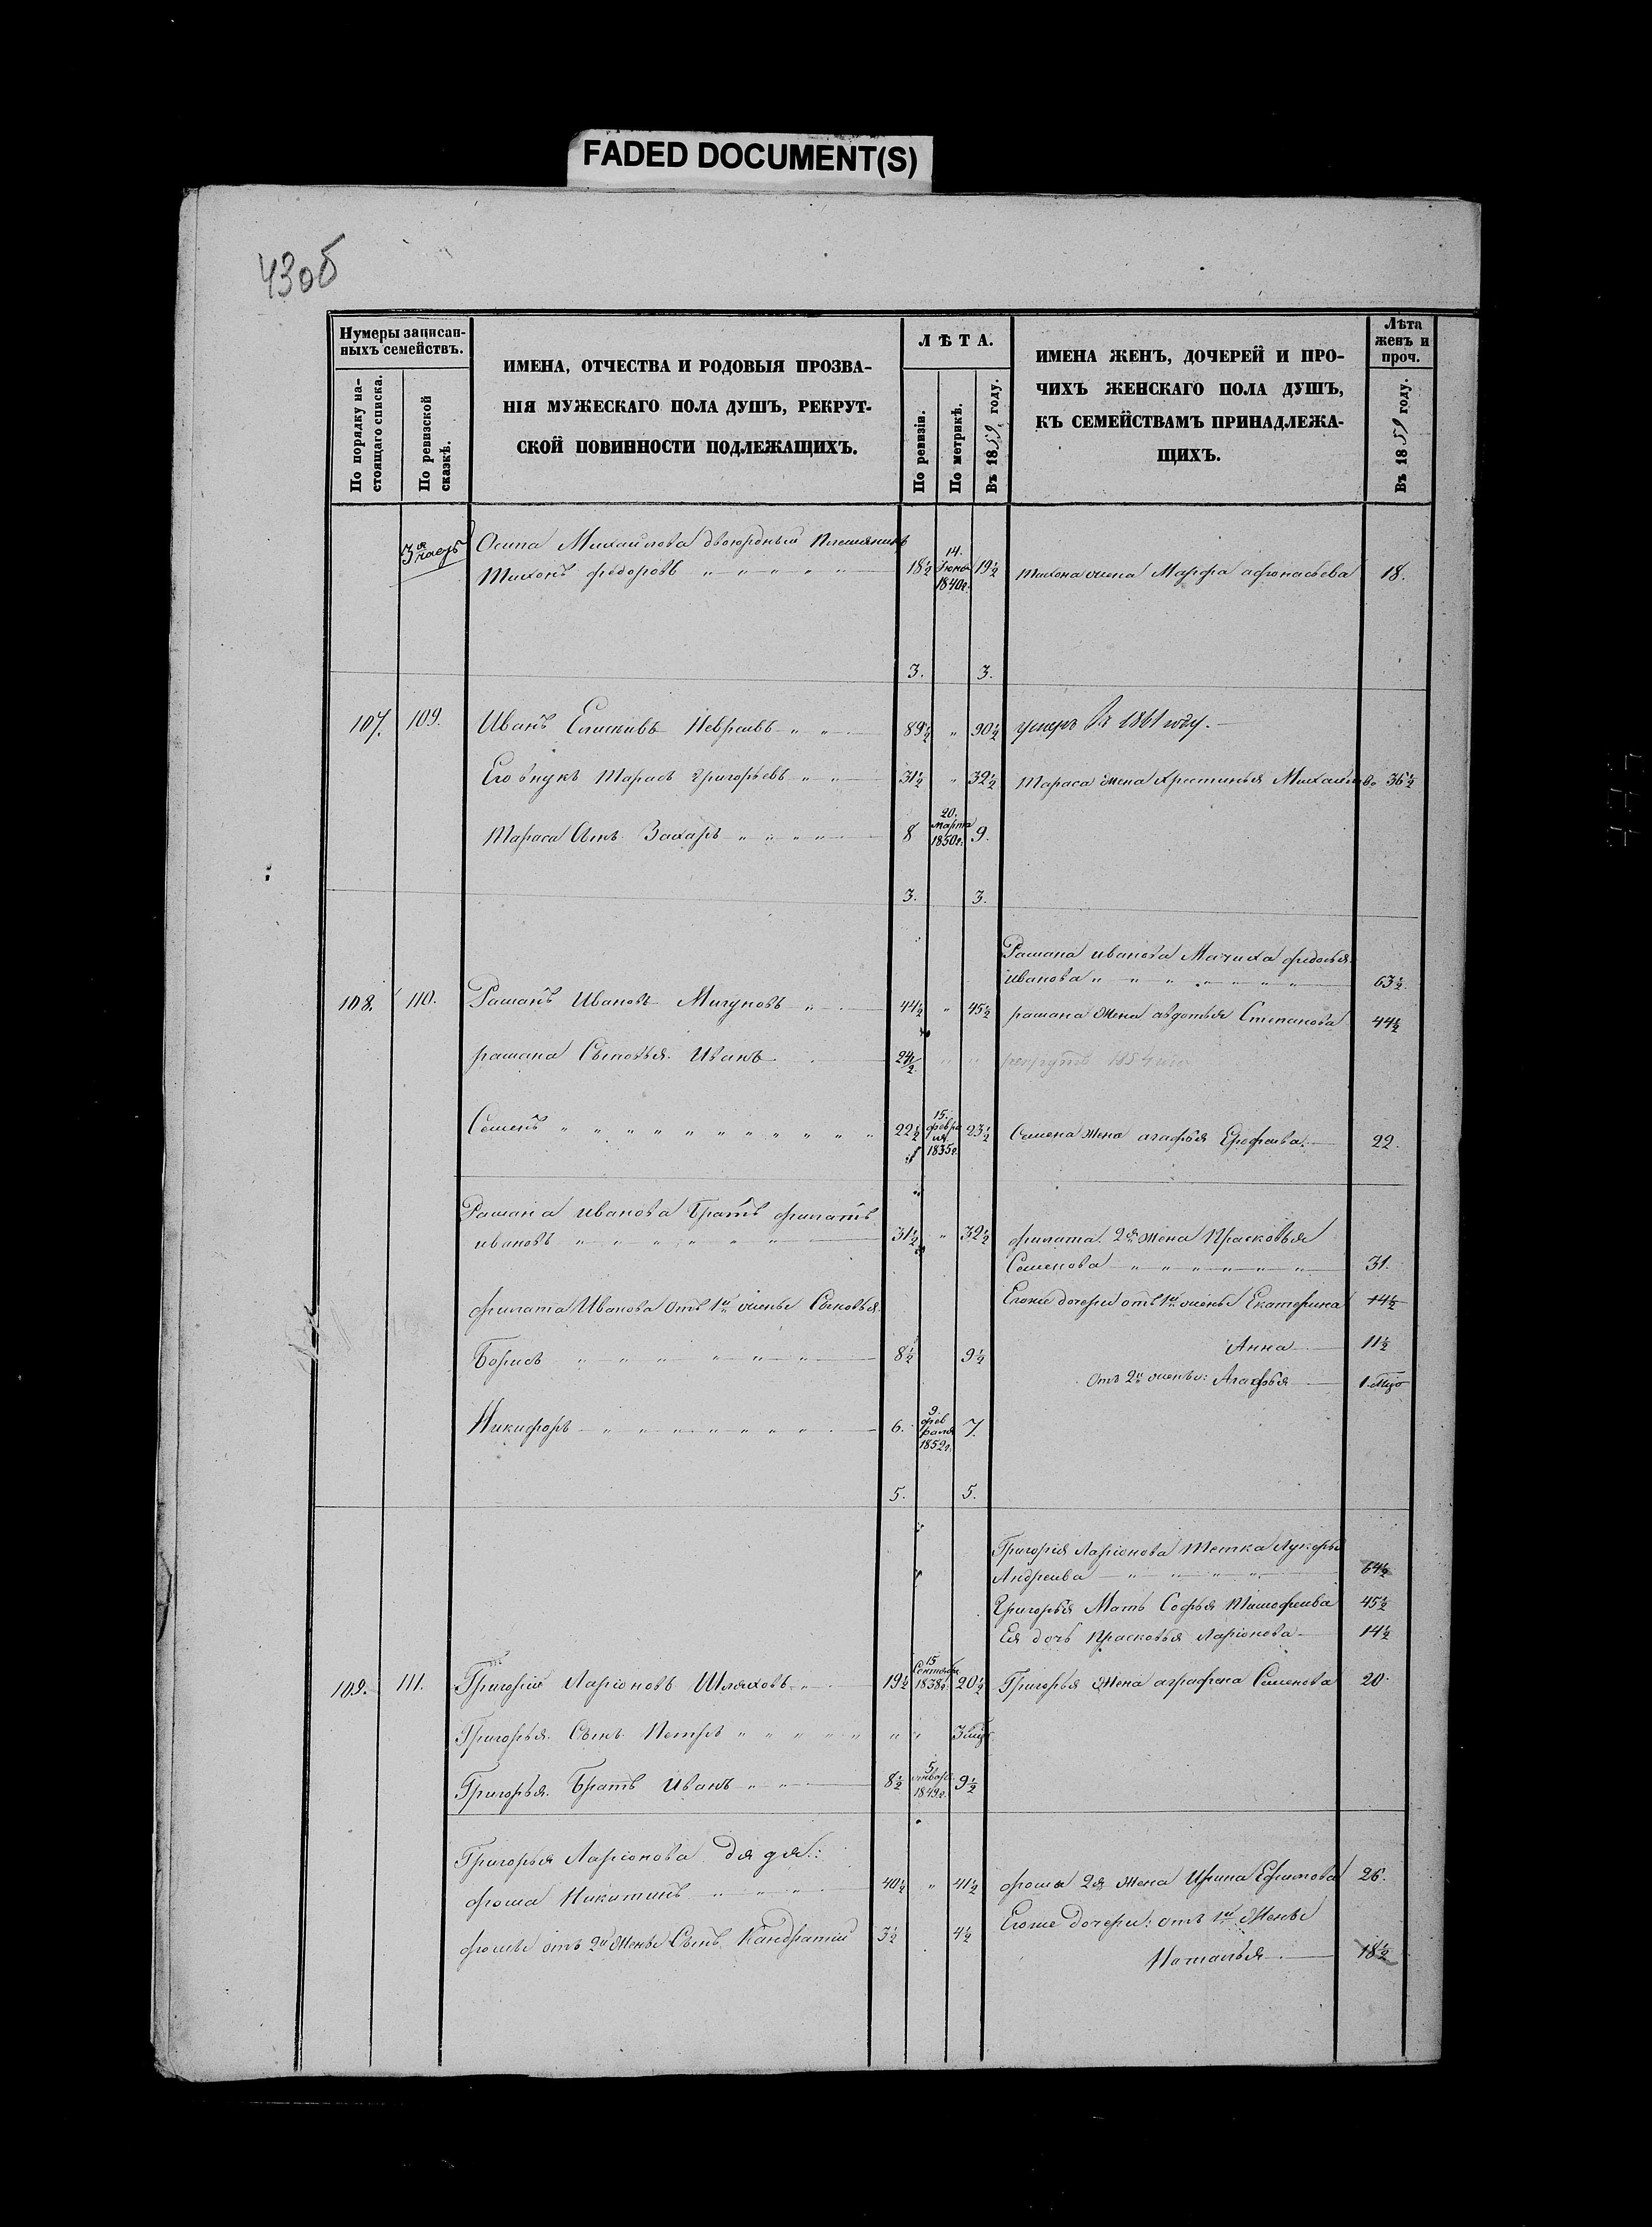 FADED DOCUMENT(S)
43об
Нумеры записан-
ныхъ семействъ.
По порядку на-
стоящаго списка.
По ревизской
сказкѣ.
ИМЕНА, ОТЧЕСТВА И РОДОВЫЯ ПРОЗВА-
НІЯ МУЖЕСКАГО ПОЛА ДУШЪ, РЕКРУТ-
СКОЙ ПОВИННОСТИ ПОДЛЕЖАЩИХЪ.
ЛѢТА.
По ревизіи.
По метрикѣ.
Въ 1859 году.
ИМЕНА ЖЕНЪ, ДОЧЕРЕЙ И ПРО-
ЧИХЪ ЖЕНСКАГО ПОЛА ДУШЪ,
КЪ СЕМЕЙСТВАМЪ ПРИНАДЛЕЖА-
ЩИХЪ.
Лѣта
женъ и
проч.
Въ 1859 году.
3я часть
Осипа Михайлова двоюродный Племянникъ
Тихонъ федоровъ 18½ 14. Іюня 1840г. 19½ Тихона жена Марфа афонасьева 18.
3. 3.
107. 109. Иванъ Елисѣевъ 89½ 90½ умеръ въ 1861 году.
Его внукъ Тарасъ григорьевъ 31½ 32½ Тараса жена Христинья Михайлова 36½
Тараса Сынъ Захаръ 8 20. марта 1850г. 9.
3. 3.
Рамана иванова Мачиха федосья
иванова 63½
108. 110. Раманъ Ивановъ Мигуновъ 44½ 45½ рамана жена авдотья Степанова 44½
рамана Сыновья Иванъ 24½ рекрутъ 1854
Семенъ 22½ 15. февраля 1835г. 23½ Семена жена агафья Ерофеева 22.
Рамана иванова Братъ филатъ
ивановъ 31½ 32½ филата 2я жена Прасковья
Семенова 31.
филата Иванова отъ 1й жены Сыновья
Егоже дочери отъ 1й жены Екатерина 14½
Борисъ 8½ 9½ Анна 11½
отъ 2й жены: Агафья
Никифоръ 6. 9. февраля 1852г. 7.
5. 5.
Григорія Ларіонова Тетка Лукерья
Андреева 64½
Григорья Мать Софья Тимофеева 45½
Ея дочь Прасковья Ларіонова 14½
109. 111. Григорій Ларіоновъ Шляховъ 19½ 15 Сентября 1838г. 20½ Григорья жена аграфена Семенова 20
Григорья Сынъ Петръ
Григорья Братъ Иванъ 8½ 5 января 1849г. 9½
Григорья Ларіонова дядя:
фома Никитинъ 40½ 41½ фомы 2я жена Ирина Ефимова 26.
Егоже дочери: отъ 1й Жены
фомы отъ 2й жены Сынъ Кандратій 3½ 4½
Наталья 18½